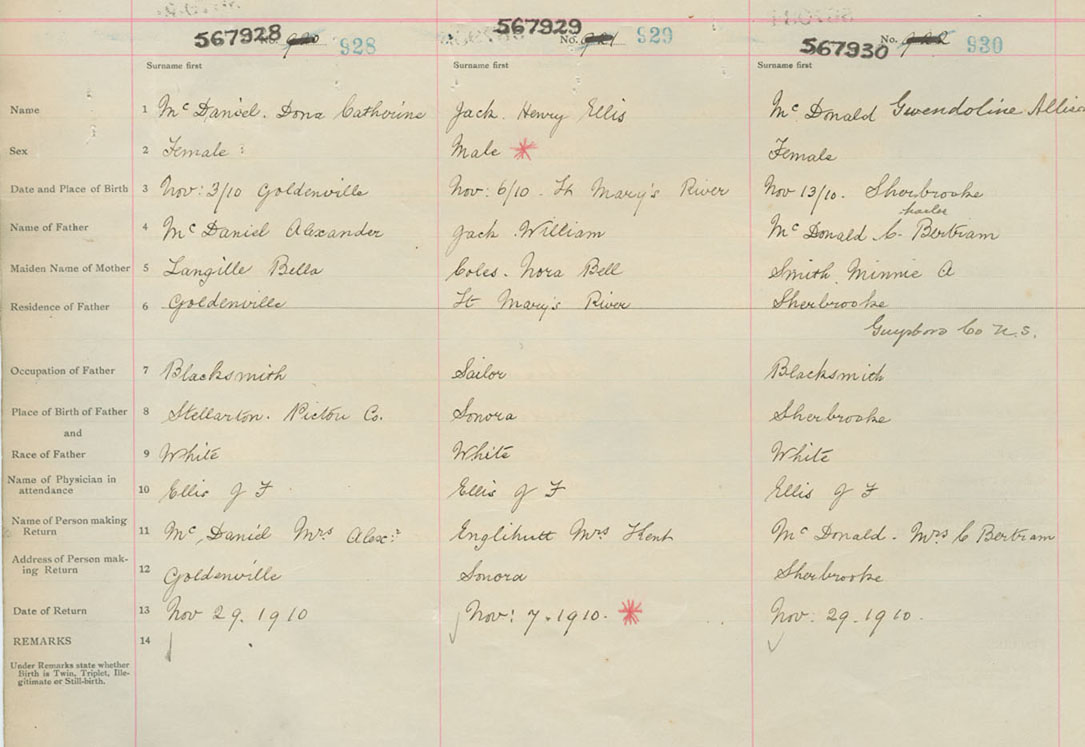 567928 No. 920 928 567929 No. 921 929 567930 No. 922 930
Surname first Surname first Surname first
Name 1 Mc Daniel. Dona Catherine Jack. Henry Ellis Mc Donald Gwendoline Allison
Sex 2 Female Male Female
Date and Place of Birth 3 Nov: 3/10 Goldenville Nov: 6/10 - St Mary's River Nov 13/10. Sherbrooke
Name of Father 4 Mc Daniel Alexander Jack William Mc Donald C. Bertram
Maiden Name of Mother 5 Langille Bella Coles. Nora Bell Smith Minnie A
Residence of Father 6 Goldenville St Mary's River Sherbrooke
Guysboro Co N.S.
Occupation of Father 7 Blacksmith Sailor Blacksmith
Place of Birth of Father 8 Stellarton. Pictou Co. Sonora Sherbrooke
and
Race of Father 9 White White White
Name of Physician in
attendance 10 Ellis J F Ellis J F Ellis J F
Name of Person making
Return 11 Mc Daniel Mrs Alexr Mrs Kent Mc Donald - Mrs C Bertram
Address of Person mak-
ing Return 12 Goldenville Sonora Sherbrooke
Date of Return 13 Nov 29. 1910 Nov: 7. 1910. Nov. 29. 1910.
REMARKS 14
Under Remarks state whether
Birth is Twin, Triplet, Ille-
gitimate or Still-birth.